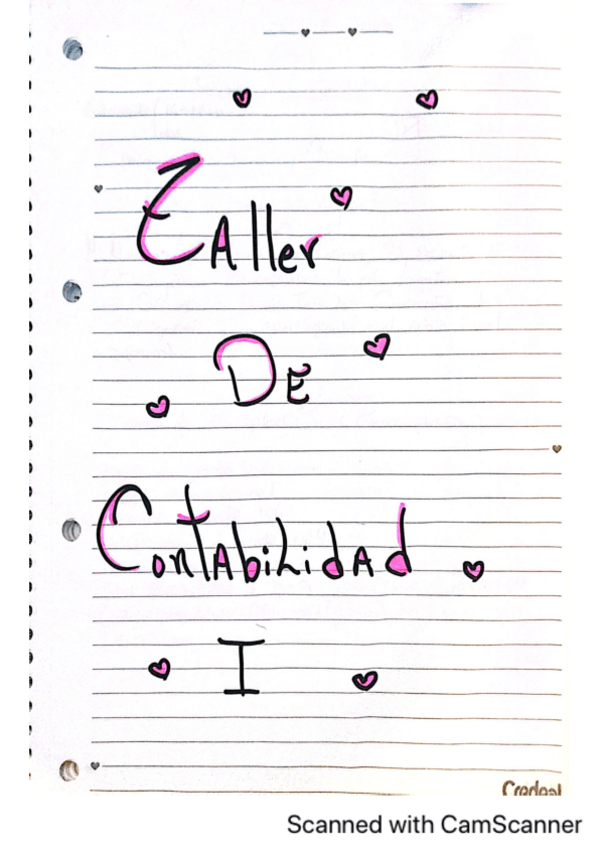 Taller
DE
Contabilidad
I
Credeal
Scanned with CamScanner